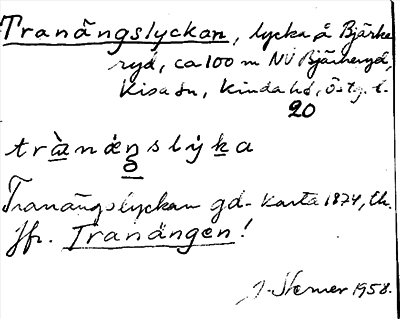 Tranängslyckan, lycka å Bjärke
ryd, ca 100 m NV Bjärkeryd,
Kisa sn, Kinda hd, Östg. l.
20
trànáŋslẏka
Tranängslyckan gd-karta 1874, Ch.
Jfr. Tranängen!
1958.